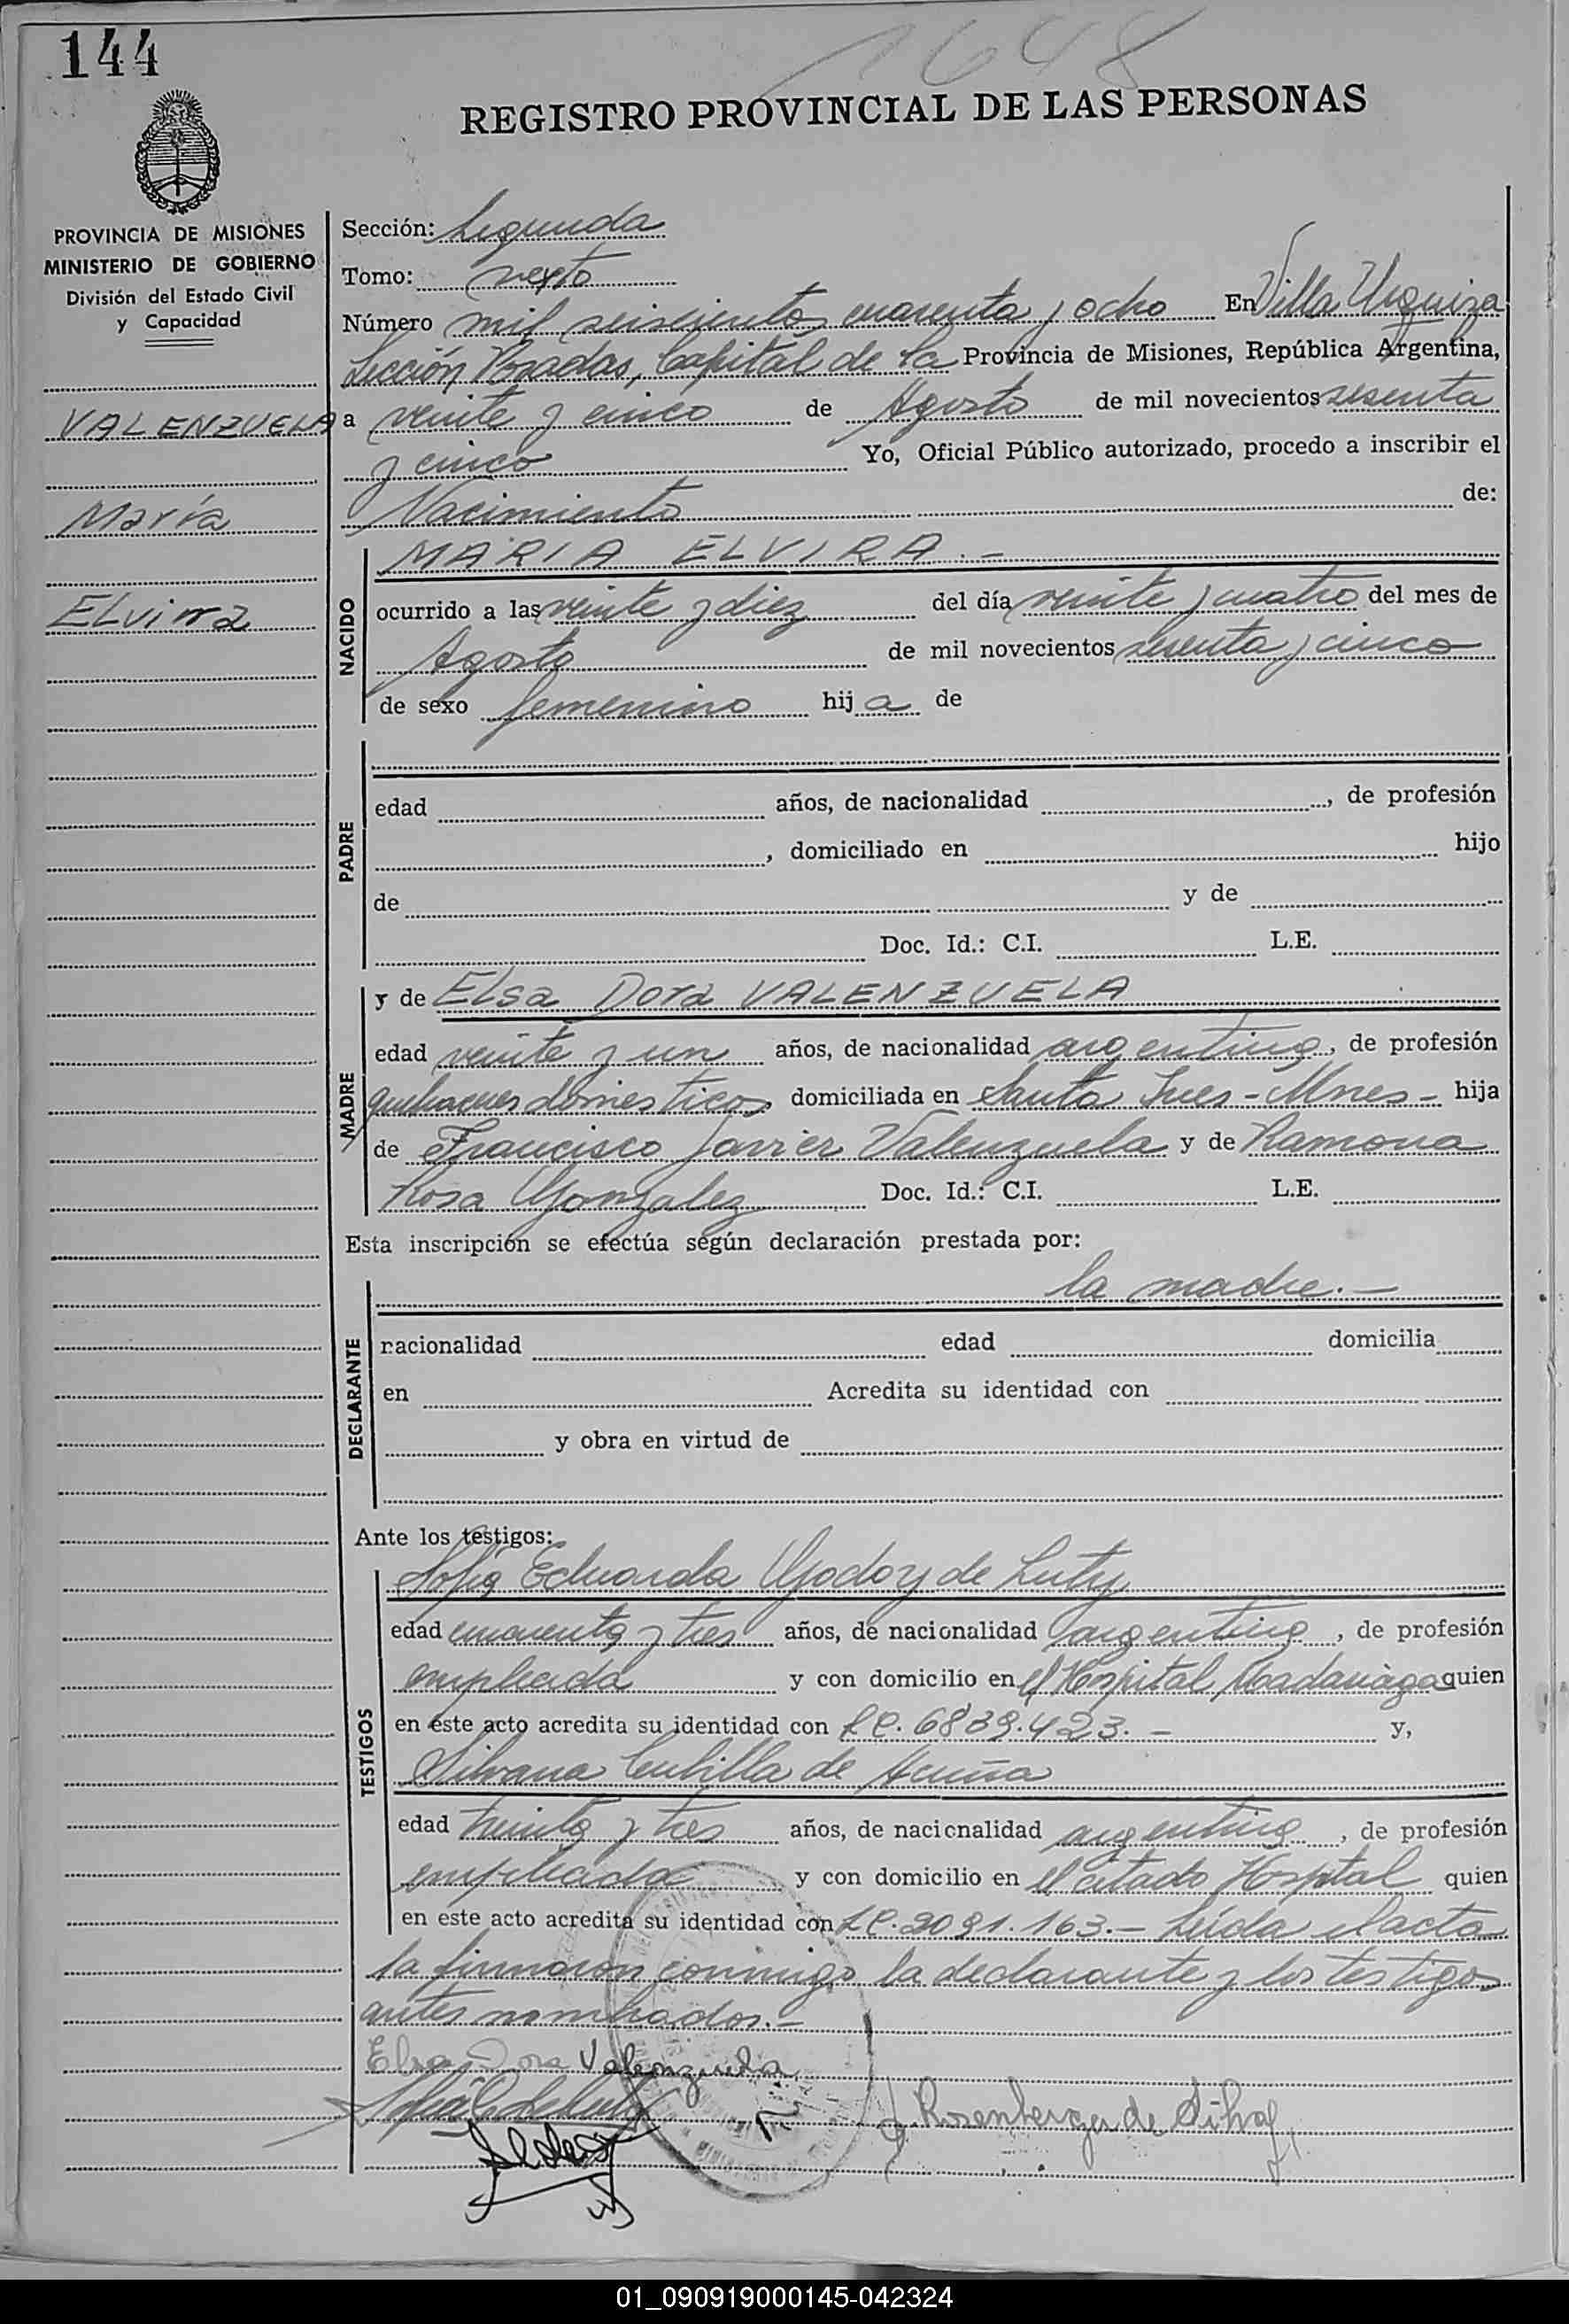 144
1648
REGISTRO PROVINCIAL DE LAS PERSONAS
PROVINCIA DE MISIONES
MINISTERIO DE GOBIERNO
División del Estado Civil
y Capacidad
VALENZUELA
María
ELvira
Sección: Segunda
Tomo: sexto
Número mil seiscientos cuarenta y ocho En Villa Urquiza
Sección Posadas, Capital de la Provincia de Misiones, República Argentina,
a veinte y cinco de Agosto de mil novecientos sesenta
y cinco Yo, Oficial Público autorizado, procedo a inscribir el
Nacimiento de:
NACIDO
MARIA ELVIRA.-
ocurrido a las veinte y diez del día veinte y cuatro del mes de
Agosto de mil novecientos sesenta y cinco
de sexo femenino hija de
PADRE
edad años, de nacionalidad , de profesión
, domiciliado en hijo
de y de
Doc. Id.: C.I. L.E.
MADRE
y de Elsa Dora VALENZUELA
edad veinte y un años, de nacionalidad argentina, de profesión
quehaceres domesticos domiciliada en Santa Ines - Mnes - hija
de Francisco Javier Valenzuela y de Ramona
Rosa Gonzalez Doc. Id.: C.I. L.E.
Esta inscripción se efectúa según declaración prestada por:
DECLARANTE
la madre.-
nacionalidad edad domicilia
en Acredita su identidad con
y obra en virtud de
Ante los testigos:
TESTIGOS
Sofia Eduarda Godoy de Luty
edad cuarenta y tres años, de nacionalidad argentina, de profesión
empleada y con domicilio en el Hospital Madariaga quien
en este acto acredita su identidad con L.C. 6839.423.- y,
Silvana Cubilla de Acuña
edad treinta y tres años, de nacionalidad argentina, de profesión
empleada y con domicilio en el citado Hospital quien
en este acto acredita su identidad con L.C. 2091.163.- Leida el acta
la firmaron conmigo la declarante y los testigos
antes nombrados.-
Elsa Dora Valenzuela
Rosenberger de Silva
01_090919000145-042324